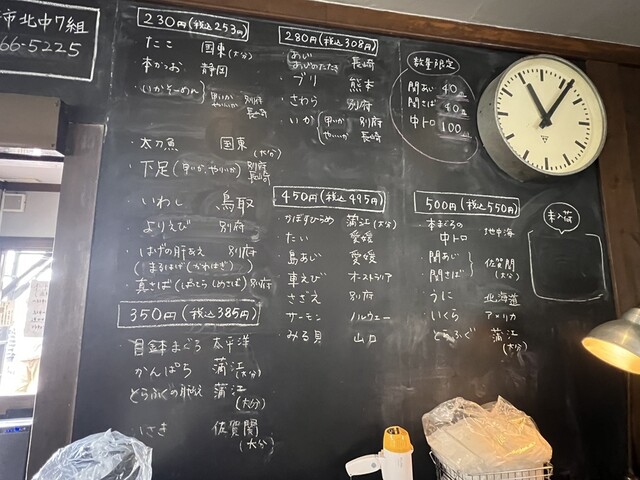 市北中7組
66-5225
230円(税込253円)
たこ 国東(大分)
本かつお 静岡
いかそーめん 甲いか 別府
やりいか 長崎
太刀魚 国東
(大分)
下足(甲いか、やりいか) 別府
長崎
いわし 鳥取
よりえび 別府
はげの肝あえ 別府
(まるはげ(かわはぎ))
真さば(ばってらしめさば)別府
350円(税込385円)
目鉢まぐろ 太平洋
かんぱち 蒲江(大分)
とらふぐの肝和え 蒲江
(大分)
いさき 佐賀関
(大分)
280円(税込308円)
あじ
あじのたたき 長崎
ブリ 熊本
さわら 別府
いか 甲いか 別府
やりいか 長崎
450円(税込495円)
かぼすひらめ 蒲江(大分)
たい 愛媛
島あじ 愛媛
車えび オーストラリア
さざえ 別府
サーモン ノルウェー
みる貝 山口
数量限定
関あじ 40皿
関さば 40皿
中トロ 100皿
500円(税込550円)
本まぐろ
中トロ 地中海
関あじ
関さば 佐賀関
(大分)
うに 北海道
いくら アメリカ
とらふぐ 蒲江
(大分)
未入荷